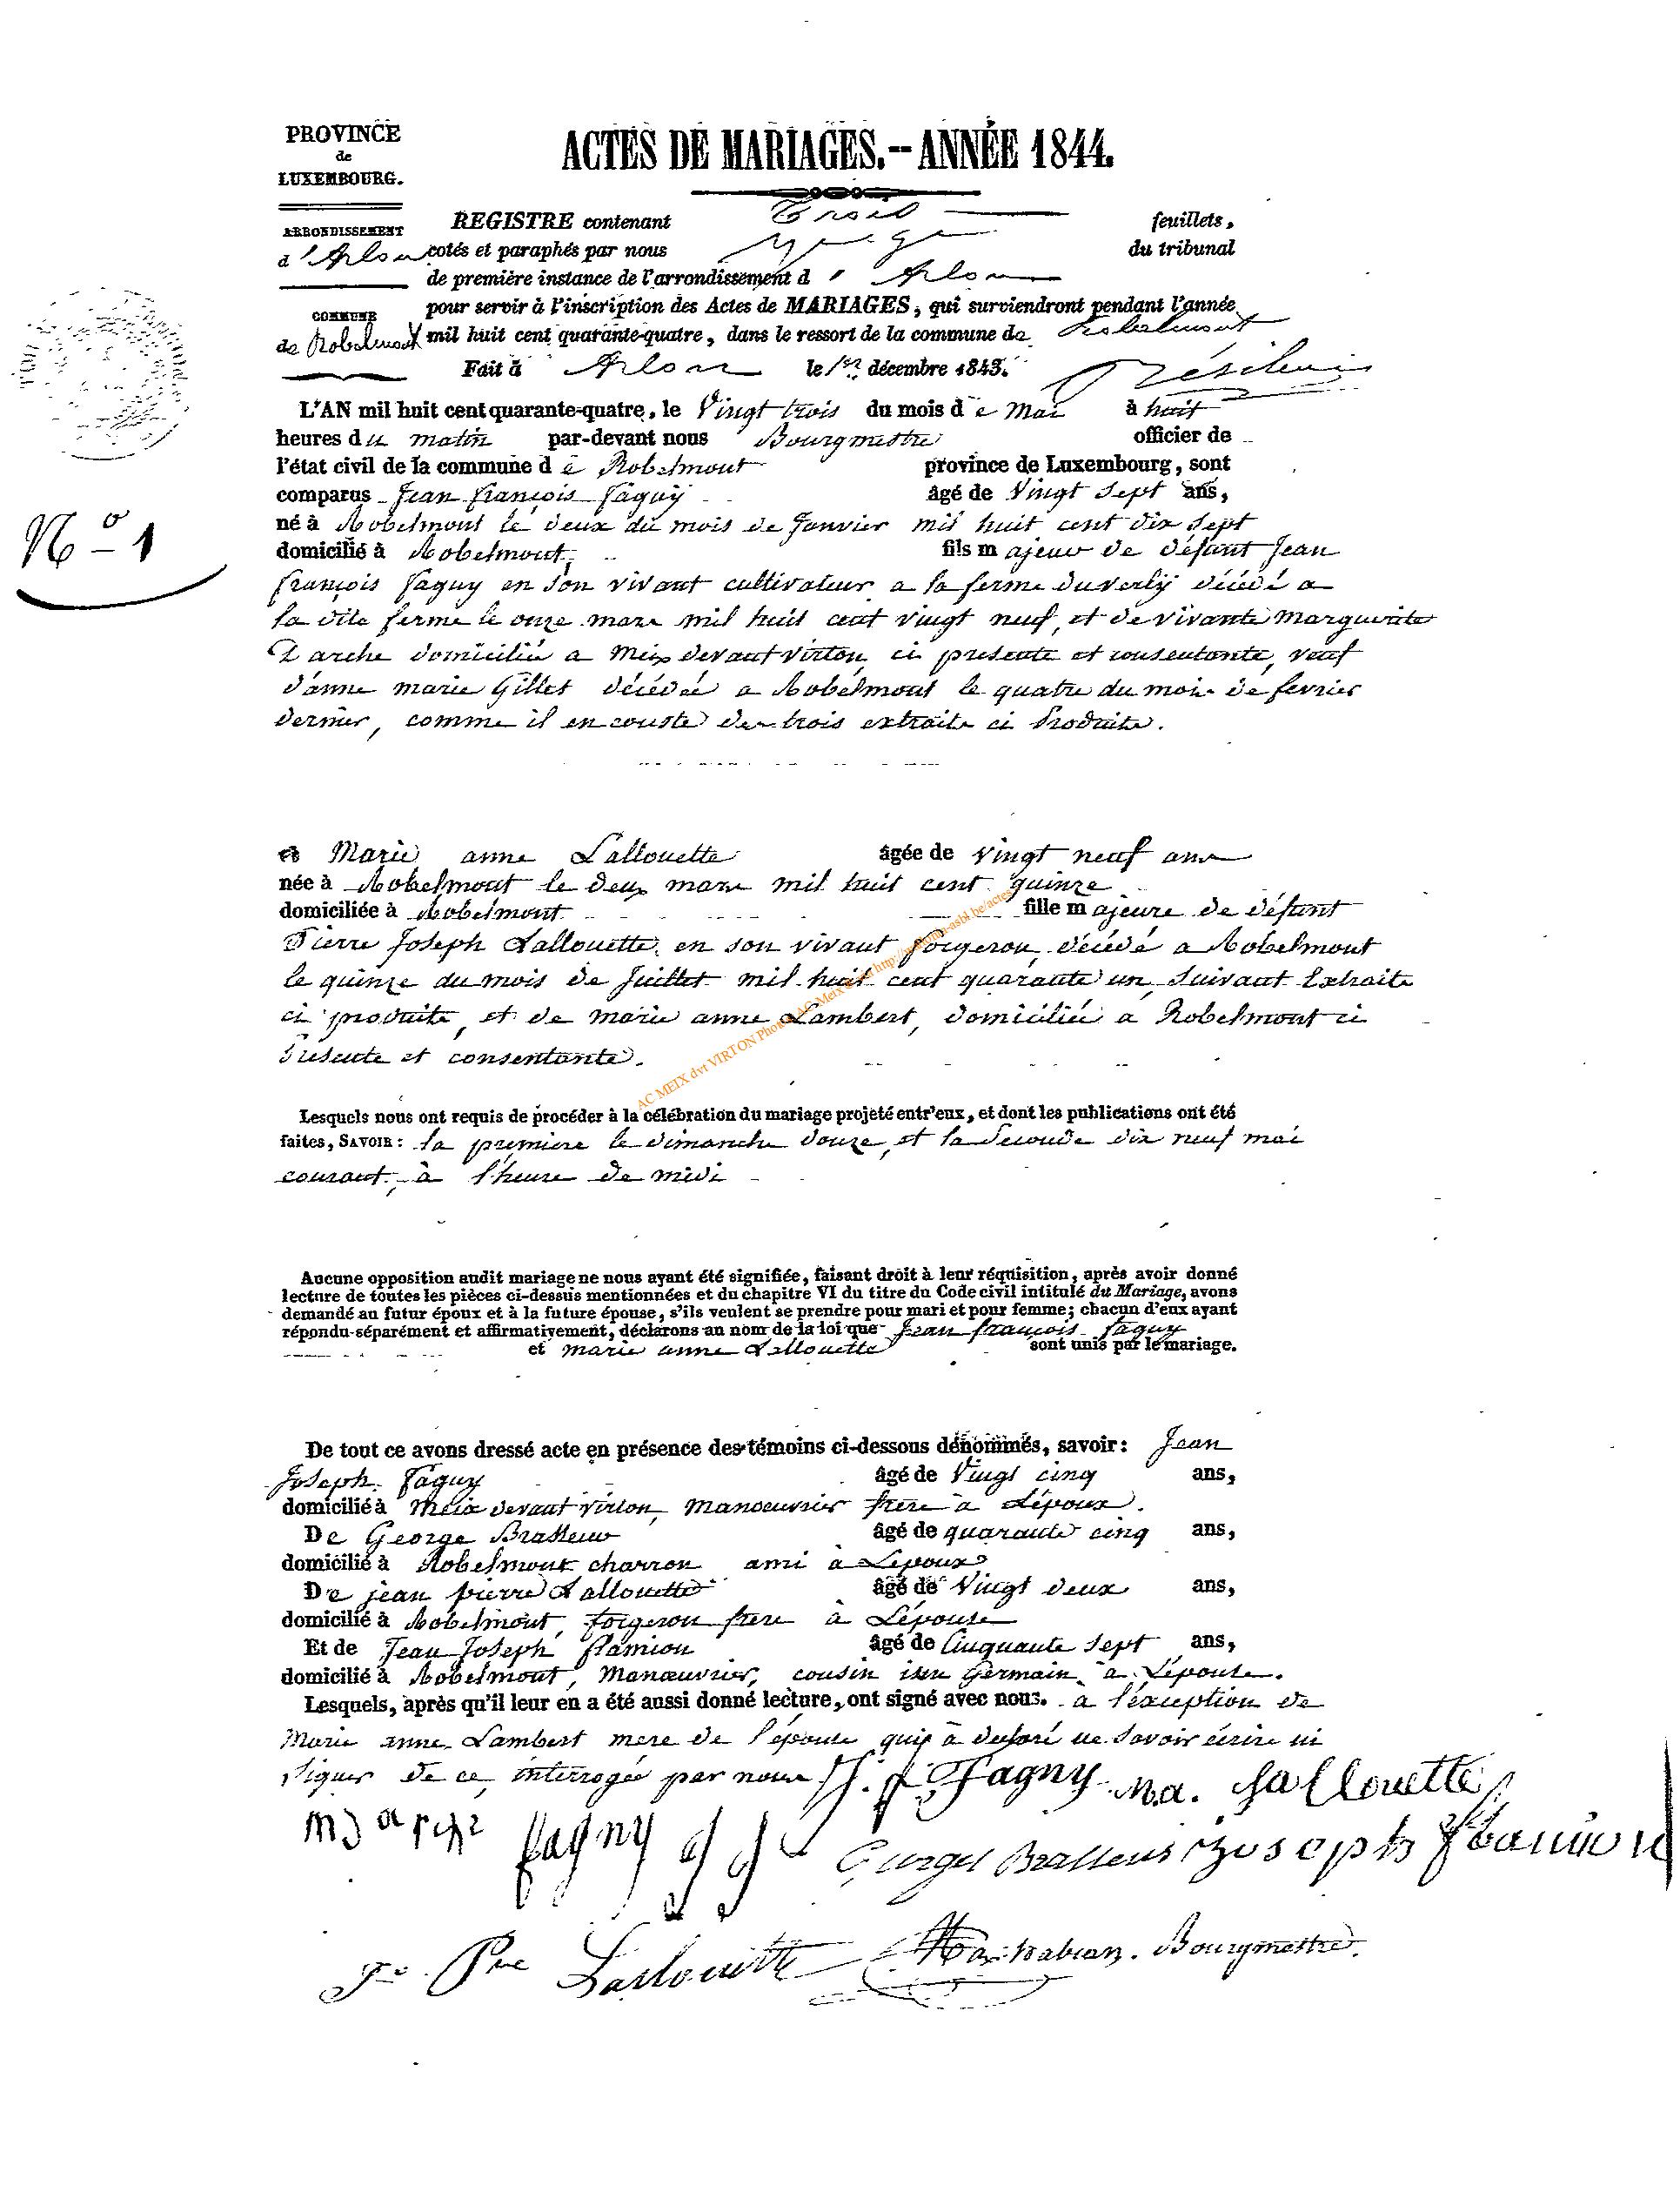 PROVINCE
de
LUXEMBOURG.
ACTES DE MARIAGES.-- ANNÉE 1844.
ARRONDISSEMENT
d'Arlon
COMMUNE
de Robelmont
REGISTRE contenant Trois feuillets,
cotés et paraphés par nous juge du tribunal
de première instance de l'arrondissement d'Arlon
pour servir à l'inscription des Actes de MARIAGES, qui surviendront pendant l'année
mil huit cent quarante-quatre, dans le ressort de la commune de Robelmont
Fait à Arlon le 1er décembre 1843.
N° 1
L'AN mil huit cent quarante-quatre, le Vingt trois du mois de Mai à huit
heures du matin par-devant nous Bourgmestre officier de
l'état civil de la commune de Robelmont province de Luxembourg, sont
comparus Jean françois fagny âgé de Vingt Sept ans,
né à Robelmont le deux du mois de Janvier mil huit cent dix Sept
domicilié à Robelmont, fils majeur de défunt Jean
françois fagny en son vivant cultivateur a la ferme duverly décédé a
la dite ferme le onze mars mil huit cent vingt neuf, et de vivante Marguerite
Darche domiciliée a Meix devant virton, ci presente et consentante, veuf
d'anne marie Gillet décédée a Robelmont le quatre du mois de fevrier
dernier, comme il en conste des trois extraits ci Produits.
et Marie anne Lallouette âgée de vingt neuf ans
née à Robelmont le deux mars mil huit cent quinze
domiciliée à Robelmont fille majeure de défunt
Pierre Joseph Lallouette, en son vivant forgeron, décédé a Robelmont
le quinze du mois de Juillet mil huit cent quarante un, Suivant Extraite
ci produite, et de marie anne Lambert, domiciliée a Robelmont ci
Presente et consentante.
AC MEIX dvt VIRTON Photos AC Meix
Lesquels nous ont requis de procéder à la célébration du mariage projeté entr'eux, et dont les publications ont été
faites, SAVOIR : la premiere le dimanche douze, et la Seconde dix neuf mai
courant, à l'heure de midi
Aucune opposition audit mariage ne nous ayant été signifiée, faisant droit à leur réquisition, après avoir donné
lecture de toutes les pièces ci-dessus mentionnées et du chapitre VI du titre du Code civil intitulé du Mariage, avons
demandé au futur époux et à la future épouse, s'ils veulent se prendre pour mari et pour femme; chacun d'eux ayant
répondu séparément et affirmativement, déclarons au nom de la loi que Jean françois fagny
et marie anne Lallouette sont unis par le mariage.
De tout ce avons dressé acte en présence des témoins ci-dessous dénommés, savoir: Jean
Joseph fagny âgé de Vingt cinq ans,
domicilié à Meix devant virton, Manoeuvrier frere a Lépoux.
De George Brasseur âgé de quarante cinq ans,
domicilié à Robelmont charron ami à Lépoux
De jean pierre Lallouette âgé de Vingt deux ans,
domicilié à Robelmont, forgeron frere à Lépouse
Et de Jean Joseph flamion âgé de Cinquante Sept ans,
domicilié à Robelmont, Manœuvrier, cousin issu Germain a Lépouse.
Lesquels, après qu'il leur en a été aussi donné lecture, ont signé avec nous. à l'exception de
Marie anne Lambert mere de l'épouse qui à declaré ne Savoir écrire ni
Signer de ce, interrogée par nous J. f. Fagny M.a. Lallouette
m Darche fagny j j Gorges Brasseur Joseph flamion
Jn Pre Lallouette Bourgmestre.